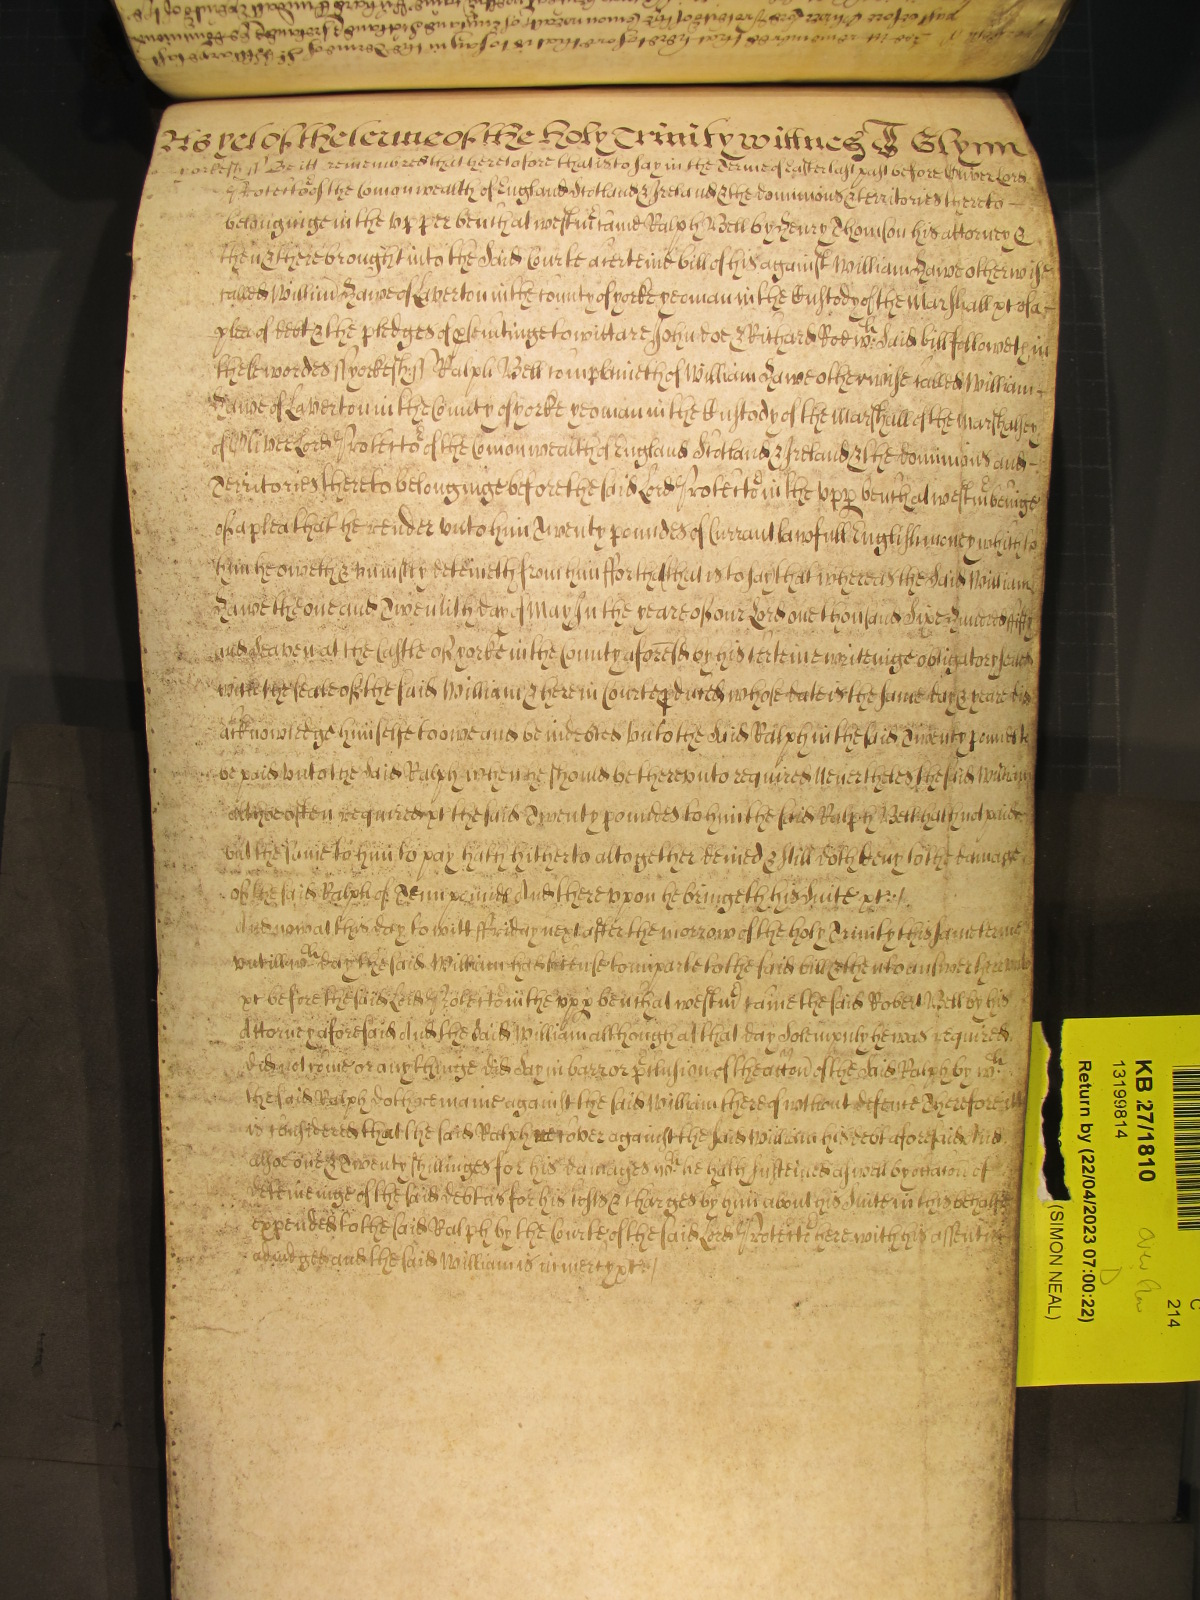 As yet of the terme of the holy Trinity wittnes J Glynn
yorkesh ss Be itt remembred that heretofore that is to say in the Terme of Easter last past before Oliver Lord
Protector of the Comonwealth of England Scotland & Ireland & the dominions & territories thereto
belonginge in the upper bench at westmr came Ralph Bell by Henry Thomson his attorney &
then & there brought into the said Courte a certeine bill of his against William Hawe otherwise
called William Hawe of Laverton in the county of yorke yeoman in the Custody of the Marshall &c of a
plea of debt & the pledges of prosecutinge to witt are John Doe & Richard Roe wch said bill followeth in
these wordes ss yorkesh ss Ralph Bell complaineth of William Hawe otherwise called William
Hawe of Laverton in the County of yorke yeoman in the Custody of the Marshall of the Marshalsey
of Oliver Lord Protector of the Comonwealth of England Scotland & Ireland & the dominions and
Territories thereto belonginge before the said Lord Protector in the upper bench at westmr beinge
of a plea that he render unto him Twenty poundes of Currant lawfull English money which to
him he oweth & uniustly deteineth from him ffor that that is to say that whereas the said William
Hawe the one and Twentith day of May In the yeare of our Lord one thousand Sixe Hundred fifty
and Seaven at the Castle of yorke in the County aforesd by his certeine writeinge obligatory sealed
with the seale of the said William & here in Courte produced whose date is the same day & yeare did
acknowledge himselfe to owe and be indebted unto the said Ralph in the said Twenty poundes to
be paid unto the said Ralph when he should be thereunto required Neverthelesse the said William
althoe often required &c the said Twenty poundes to him the said Ralph Bell hath not paid
but the same to him to pay hath hitherto altogether denied & still doth deny to the damage
of the said Ralph of Tenn pounds And thereupon he bringeth his Suite &c
And now at this day to witt ffriday next after the morrow of the holy Trinity this same terme
untill wch day the said William had license to imparle to the said bill & then to answer thereunto
&c before the said Lord Protector in the upp bench at westmr came the said Robert Bell by his
Attorney aforesaid And the said William although at that day solempnly he was required
did not come or any thinge did say in barr or preclusion of the accon of the said Ralph by wch
the said Ralph doth remaine against the said William thereof without defence Therefore itt
is considered that the said Ralph recover against the said William his debt aforesaid And
alsoe one & Twenty shillinges for his damages wch he hath susteined aswel by occaion of
deteineinge of the said debt as for his costs & charges by him about his Suite in this behalfe
expended to the said Ralph by the Courte of the said Lord Protector here with his assent
adiudged and the said William is in mercy &c
KB 27/1810
13199814
Return by (22/04/2023 07:00:22)
(SIMON NEAL)
214
C
D